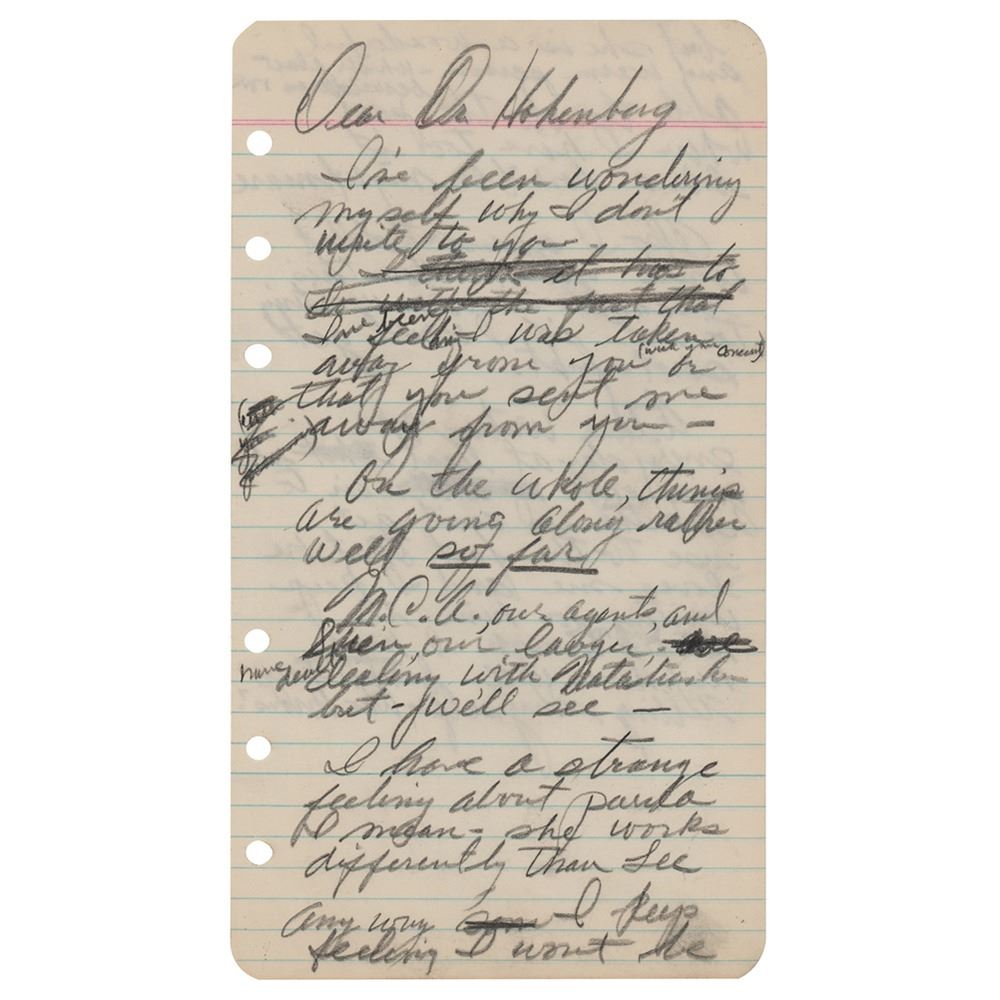 Dear Dr. Hohenberg
I've been wondering
myself why I don't
write to you
I think it has to
do with the fact that
I've been feeling I was taken
away from you (with your consent) or
that you sent me
away from you —
On the whole, things
are going along rather
well so far
M.C.A., our agents, and
Stein, our lawyer, are
have dealing with Natasha
but - we'll see —
I have a strange
feeling about paula
I mean - she works
differently than Lee
any way I keep
feeling I won't be